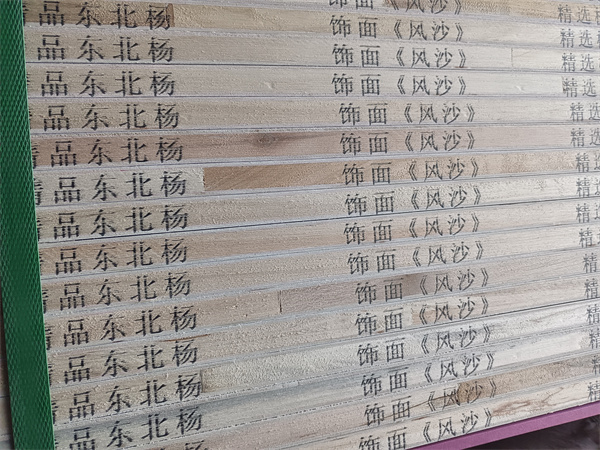 品东北杨 饰面《风沙》 精选
品东北杨 饰面《风沙》 精选
品东北杨 饰面《风沙》 精选
品东北杨 饰面《风沙》 精选
品东北杨 饰面《风沙》 精选
精品东北杨 饰面《风沙》 精选
精品东北杨 饰面《风沙》 精选
品东北杨 饰面《风沙》 精选
品东北杨 饰面《风沙》 精选
品东北杨 饰面《风沙》 精
品东北杨 饰面《风沙》 精
品东北杨 饰面《风沙》 精
品东北杨 饰面《风沙》 精
品东北杨 饰面《风沙》
品东北杨 饰面《风沙》